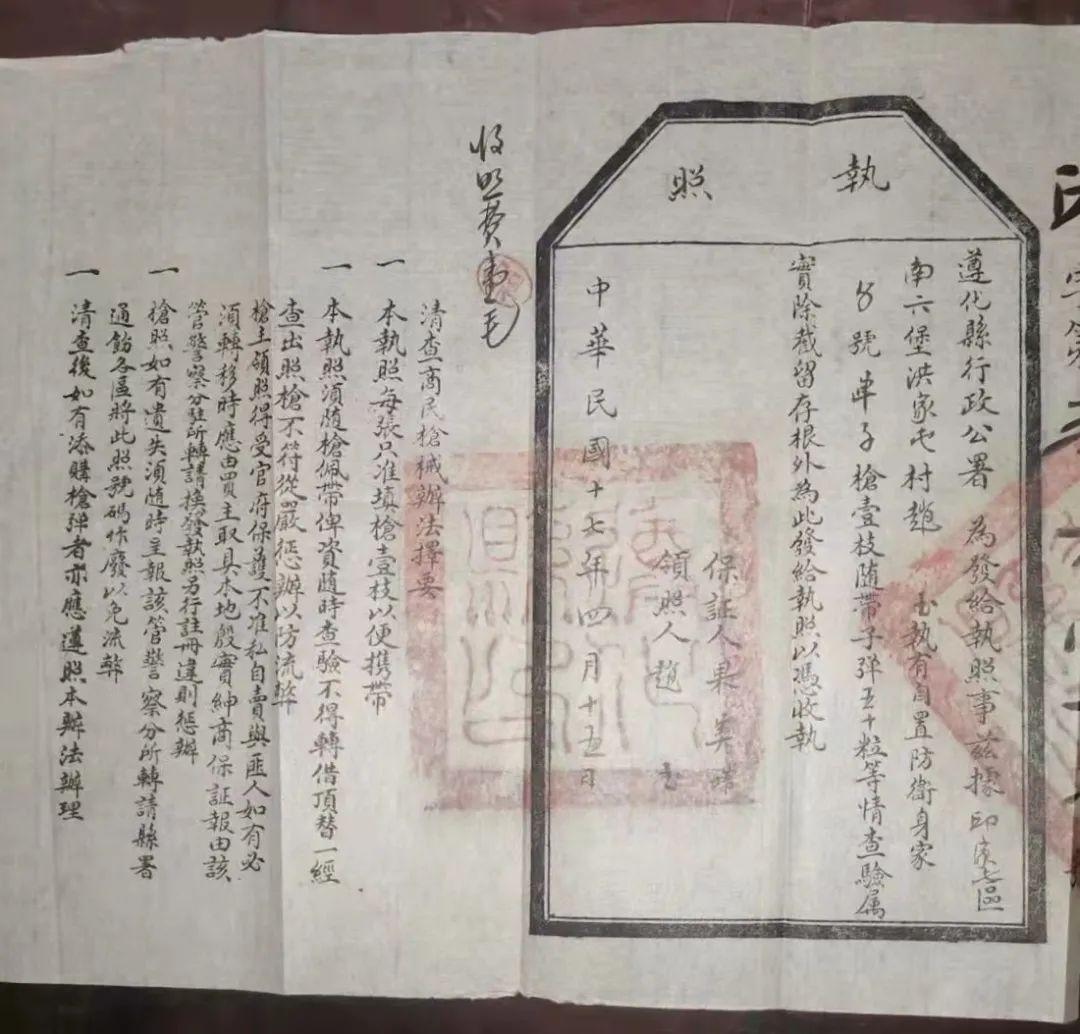 執照
遵化縣行政公署 為發給執照事茲據
區
南六堡洪家屯村趙 玉執有自置防衛身家
號 子槍壹枝隨帶子弹五十粒等情查驗属
實除截留存根外為此發給執照以憑收執
保証人果
領照人趙 玉
中華民國十七年四月十五日
收照費壹毛
清查商民槍械辦法擇要
一 本執照每張只准填槍壹枝以便携帶
一 本執照須随槍佩帶俾資随時查驗不得轉借頂替一經
查出照槍不符從嚴懲辦以防流弊
槍主領照得受官府保護不准私自賣與匪人如有必
須轉移時應由買主取具本地殷實紳商保証報由該
管警察分駐所轉請換發執照另行註冊違則懲辦
一 槍照如有遺失須随時主報該管警察分所轉請縣署
通飭各區將此照號碼作廢以免流弊
一 清查後如有添購槍弹者亦應遵照本辦法辦理